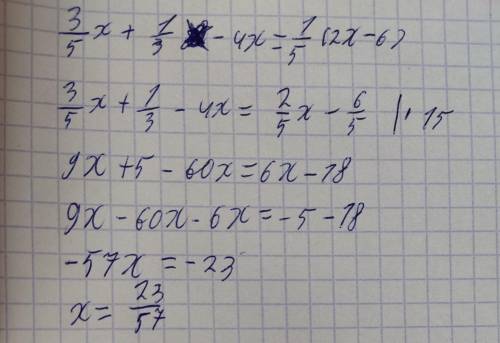 3/5 x + 1/3 - 4x = 1/5 (2x - 6)
3/5 x + 1/3 - 4x = 2/5 x - 6/5 |· 15
9x + 5 - 60x = 6x - 18
9x - 60x - 6x = -5 - 18
-57x = -23
x = 23/57